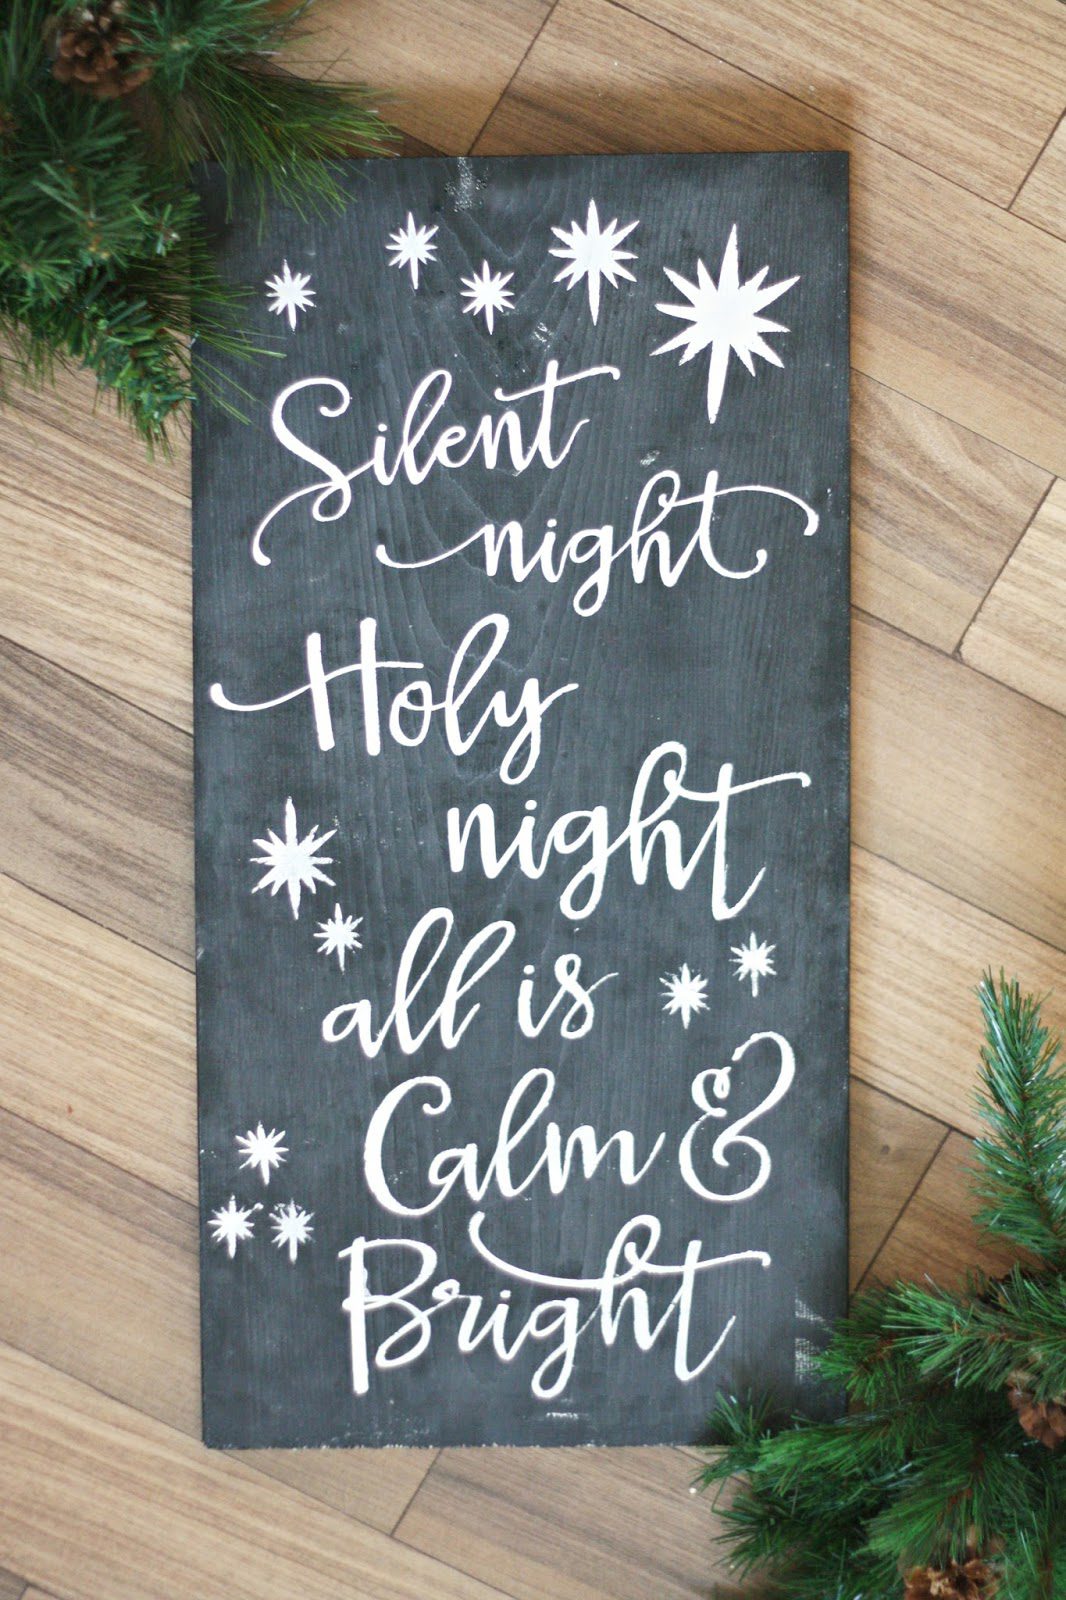 Silent
night
Holy
night
all is
Calm &
Bright